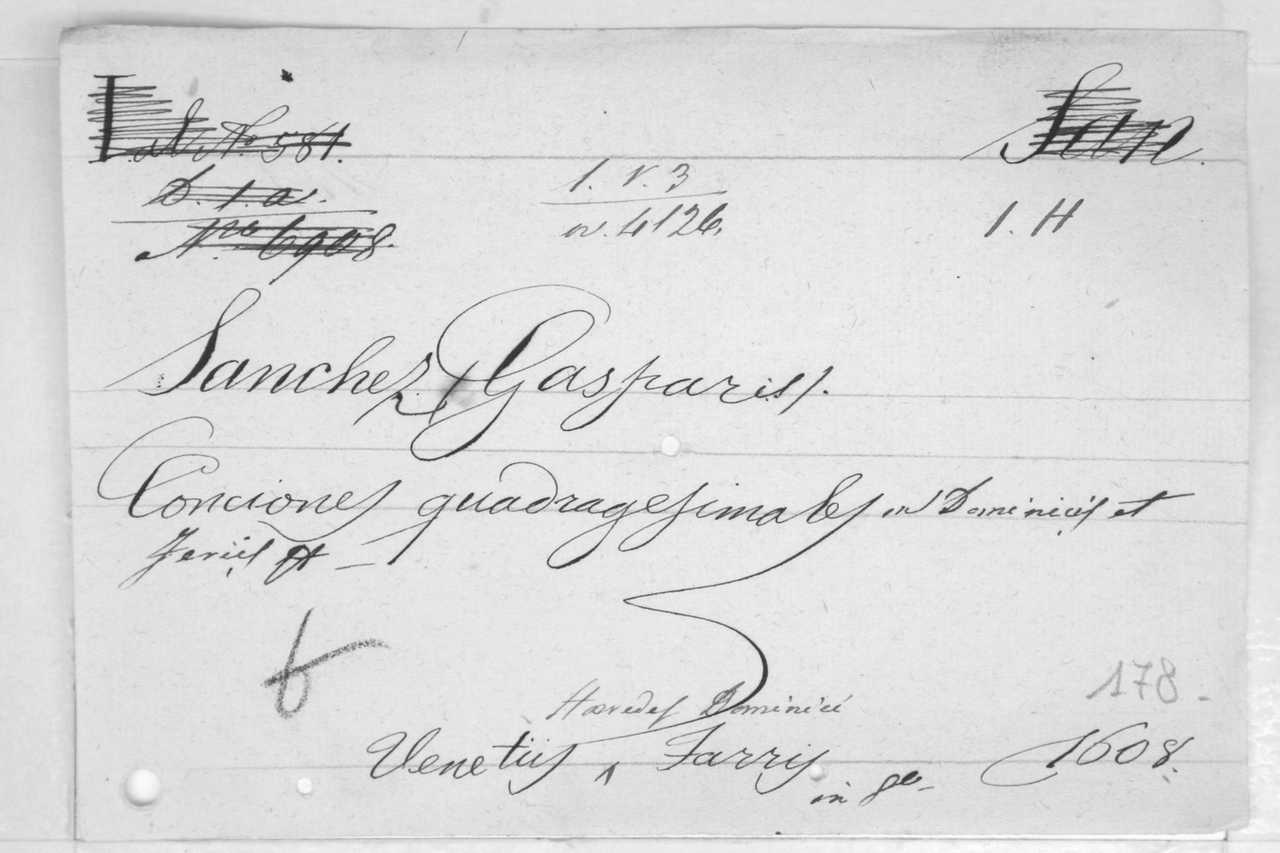 N° 581.
D. 1. a.
1. V. 3
N.ro 6908.
n. 4126.
1. H
Sanchez Gasparis.
Conciones quadragesimales in Dominicis et
Feriis
178
Haeredes Dominici
Venetiis Farris 1608.
in 8°